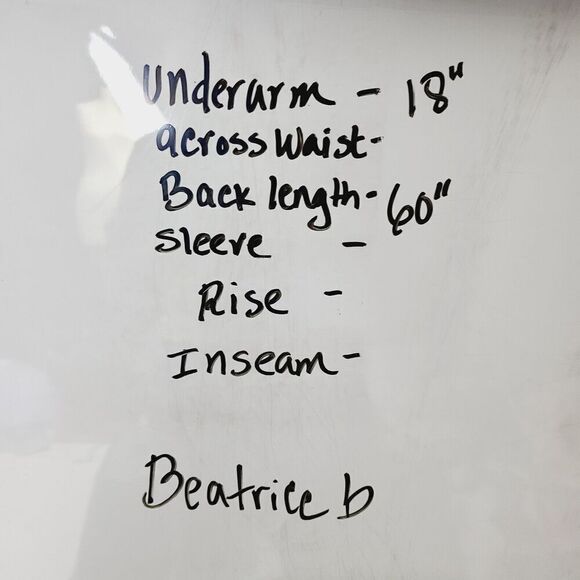 Underarm - 18"
across Waist-
Back length- 60"
Sleeve -
Rise -
Inseam -
Beatrice b